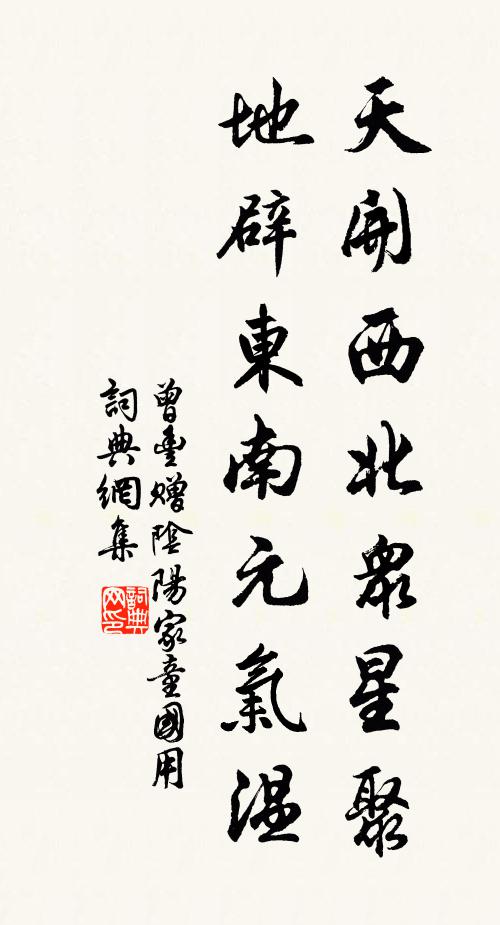 天開西北衆星聚
地辟東南元氣温
曾豊贈陰陽家童國用
詞典網集
詞典网印